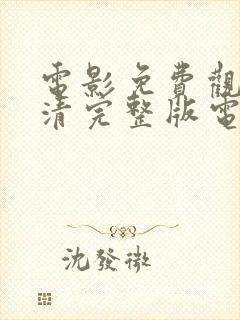 電影免費觀
清完整版電
沈發微